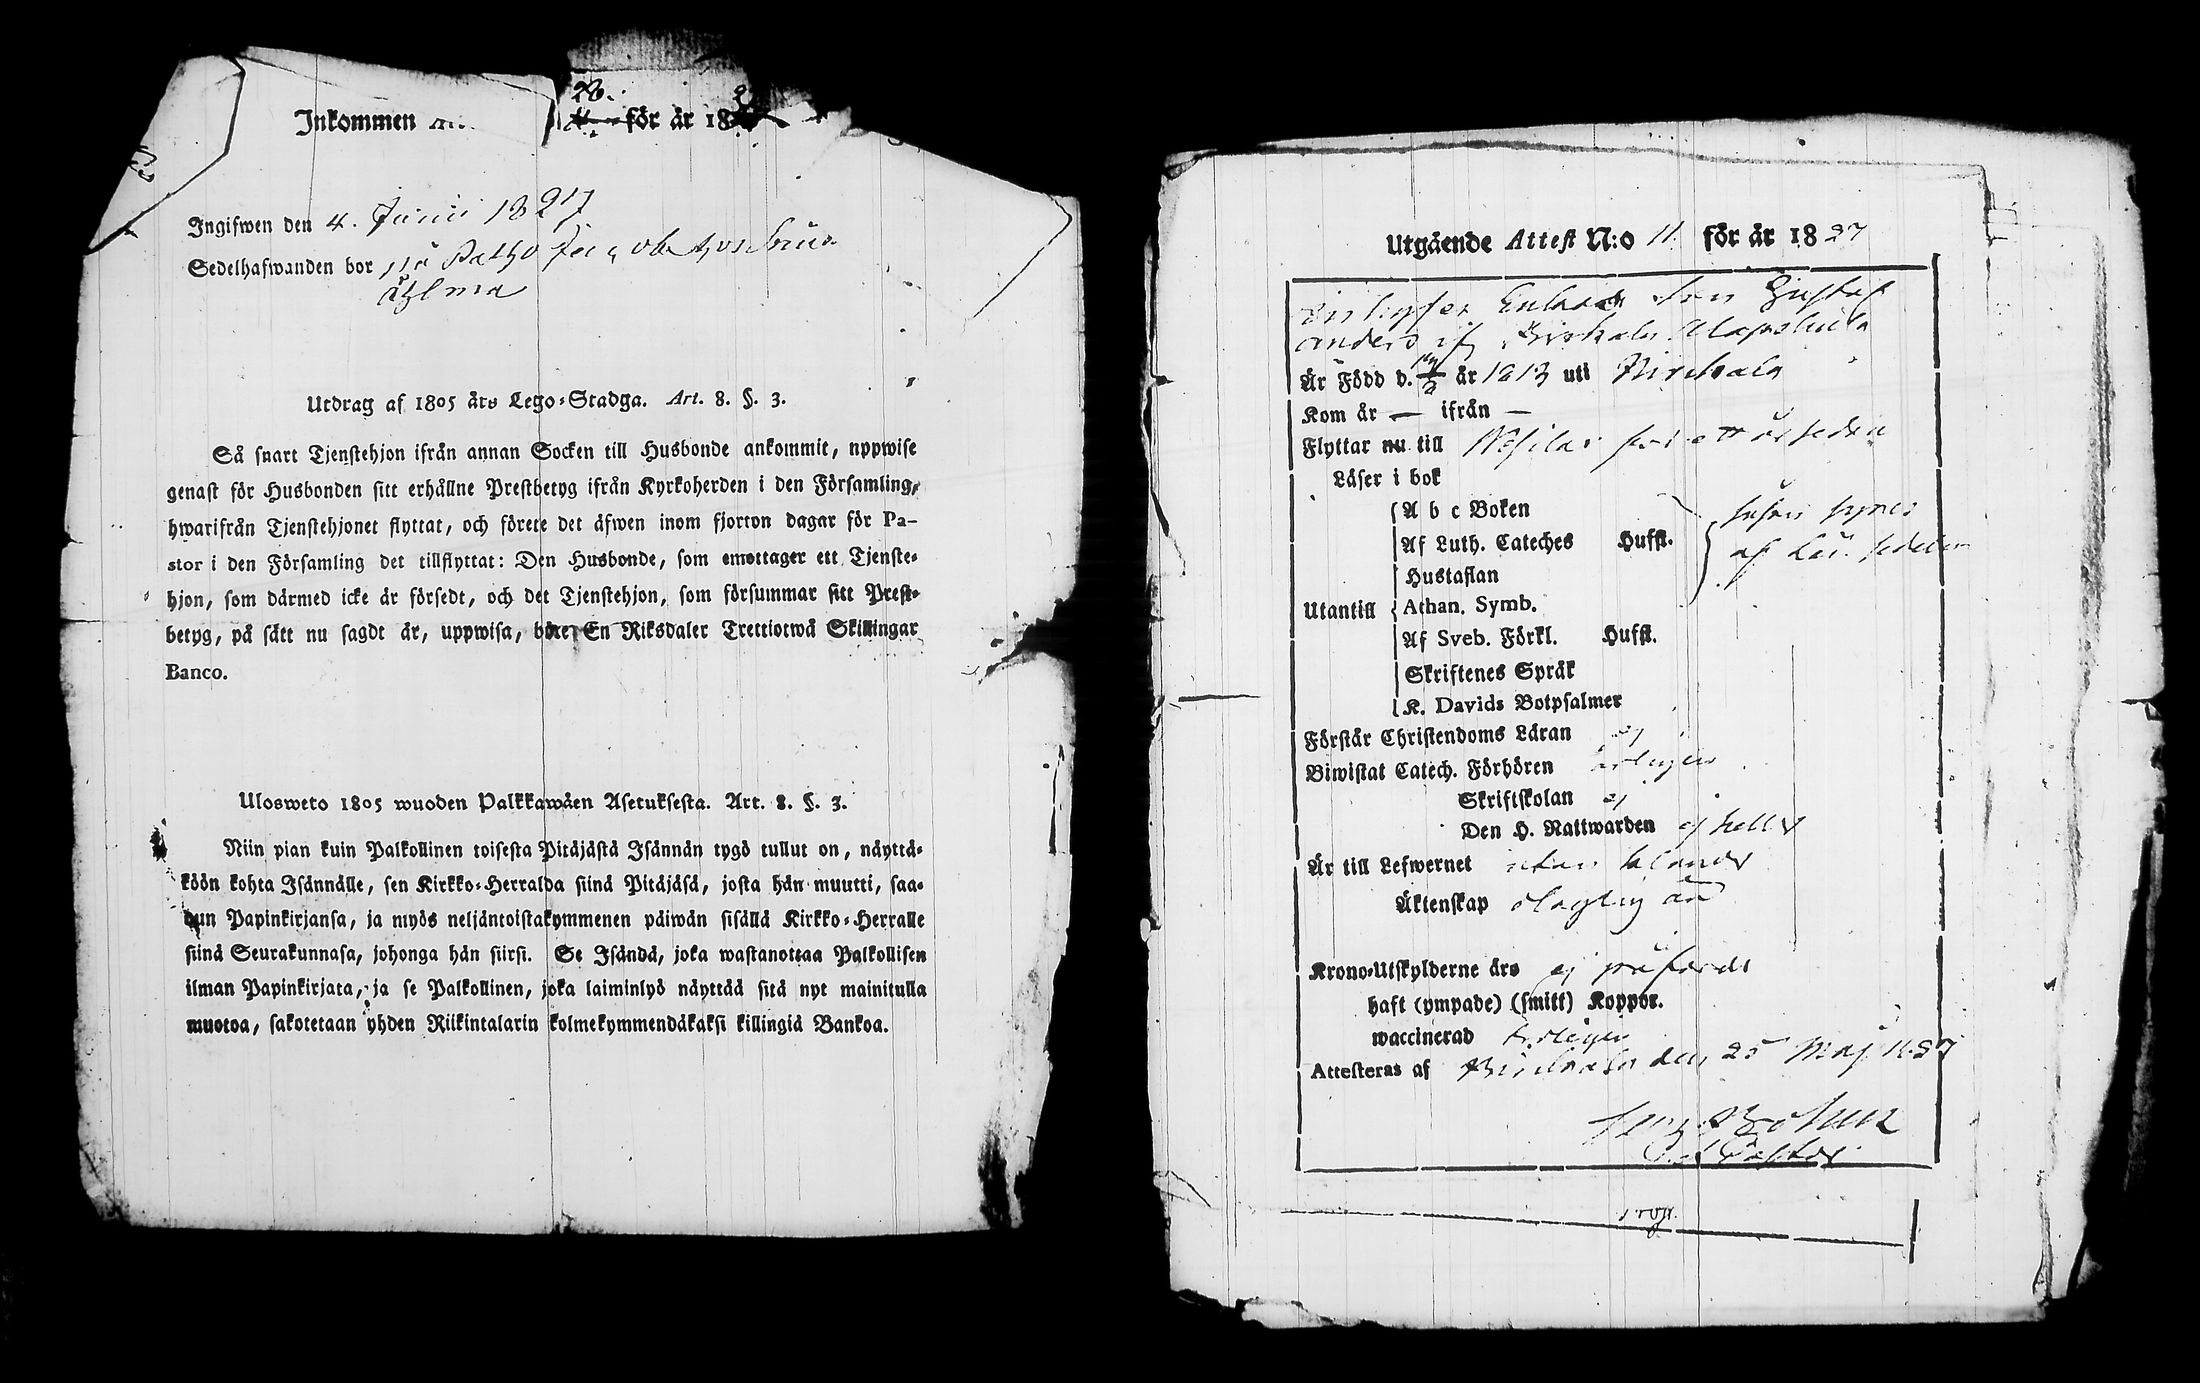 Inkommen
28.
för år 18
Ingifwen den 4. Junii 1827
Sedelhafwanden bor
Utdrag af 1805 års Lego-Stadga. Art. 8. §. 3.
Så snart Tjenstehjon ifrån annan Socken till Husbonde ankommit, uppwise
genast för Husbonden sitt erhållne Prestbetyg ifrån Kyrkoherden i den Församling,
hwarifrån Tjenstehjonet flyttat, och förete det äfwen inom fjorton dagar för Pa-
stor i den Församling det tillflyttat: Den Husbonde, som emottager ett Tjenste-
hjon, som därmed icke är försedt, och det Tjenstehjon, som försummar sitt Prest-
betyg, på sätt nu sagdt är, uppwisa, böte En Riksdaler Trettiotwå Skillingar
Banco.
Ulosweto 1805 wuoden Palkkawäen Asetuksesta. Art. 8. §. 3.
Niin pian kuin Palkollinen toisesta Pitäjästä Isännän tygö tullut on, näyttä-
köön kohta Isännälle, sen Kirkko-Herralda siinä Pitäjäsä, josta hän muutti, saa-
dun Papinkirjansa, ja myös neljäntoistakymmenen päiwän sisällä Kirkko-Herralle
siinä Seurakunnasa, johonga hän siirsi. Se Isändä, joka wastanottaa Palkollisen
ilman Papinkirjata, ja se Palkollinen, joka laiminlyö näyttää sitä nyt mainitulla
muotoa, sakotetaan yhden Riikintalarin kolmekymmendäkaksi killingiä Bankoa.
Utgående Attest N:o 11. för år 1827
Enkans son Gustaf
Anders if Birkala
Är Född d. år 1813 uti Birckala
Kom år — ifrån —
Flyttar nu till för ett år sedan
Läser i bok
A b c Boken
Af Luth. Cateches Hufst.
Hustaflan
Utantill Athan. Symb.
Af Sveb. Förkl. Hufst.
Skriftenes Språk
K. Davids Botpsalmer
såsom synes
af sedelen
Förstår Christendoms Läran ej
Biwistat Catech. Förhören årligen
Skriftskolan ej
Den H. Nattwarden ej heller
Är till Lefwernet utan klander
Äktenskap olaglig än
Krono-Utskylderne äro ej påförde
haft (ympade) (smitt) Koppor.
waccinerad
Attesteras af Birckala den 25 Maj 1827